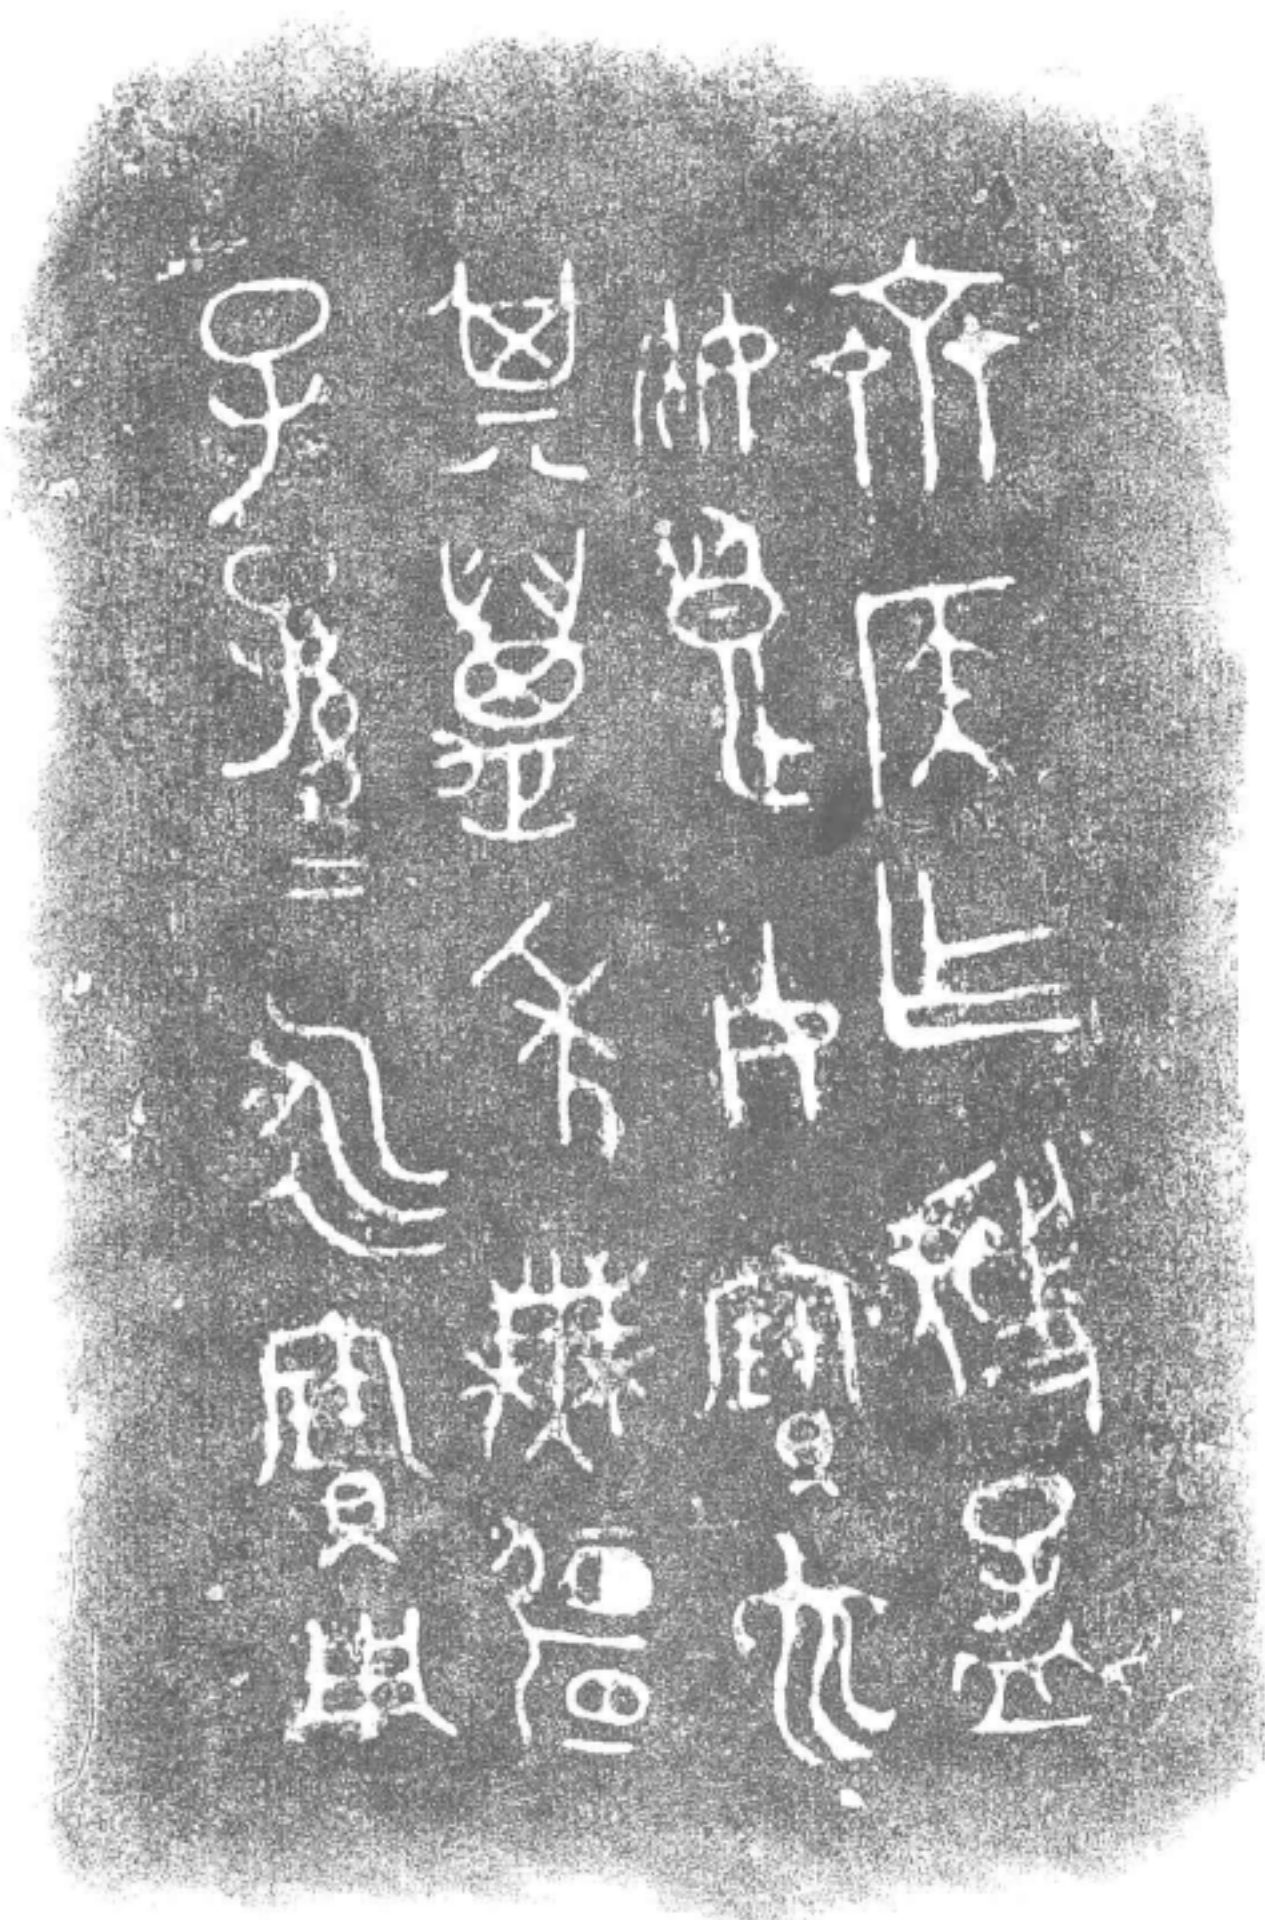 齊侯乍虢孟
姬良女寶匜
其萬年無疆
子孫=永寶用